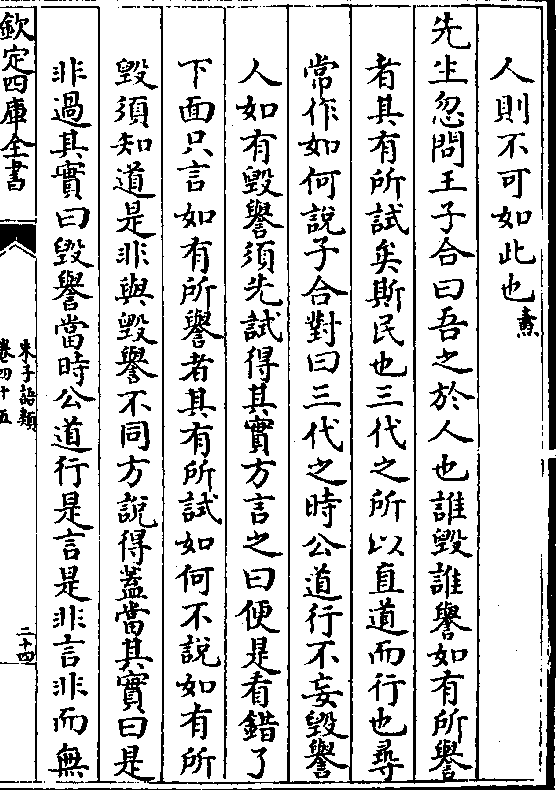 人則不可如此也燾
先生忽問王子合曰吾之於人也誰毀誰譽如有所譽
者其有所試矣斯民也三代之所以直道而行也尋
常作如何說子合對曰三代之時公道行不妄毀譽
人如有毀譽須先試得其實方言之曰便是看錯了
下面只言如有所譽者其有所試如何不說如有所
毀須知道是非與毀譽不同方說得蓋當其實曰是
非過其實曰毀譽當時公道行是言是非言非而無
欽定四庫全書
朱子語類
卷四十五
二十四